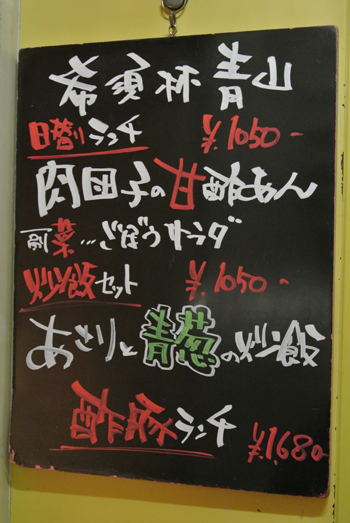 希須林 青山
日替りランチ ¥1050-
肉団子の甘酢あん
副菜…ごぼうサラダ
炒飯セット ¥1050-
あさりと青葱の炒飯
ランチ ¥1,680